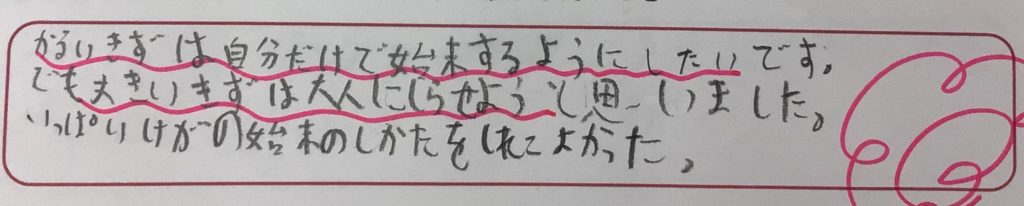 かるいきずは自分だけで始末するようにしたいです。
でも大きいきずは大人にしらせようと思いました。
いっぱいけがの始末のしかたをしれてよかった。